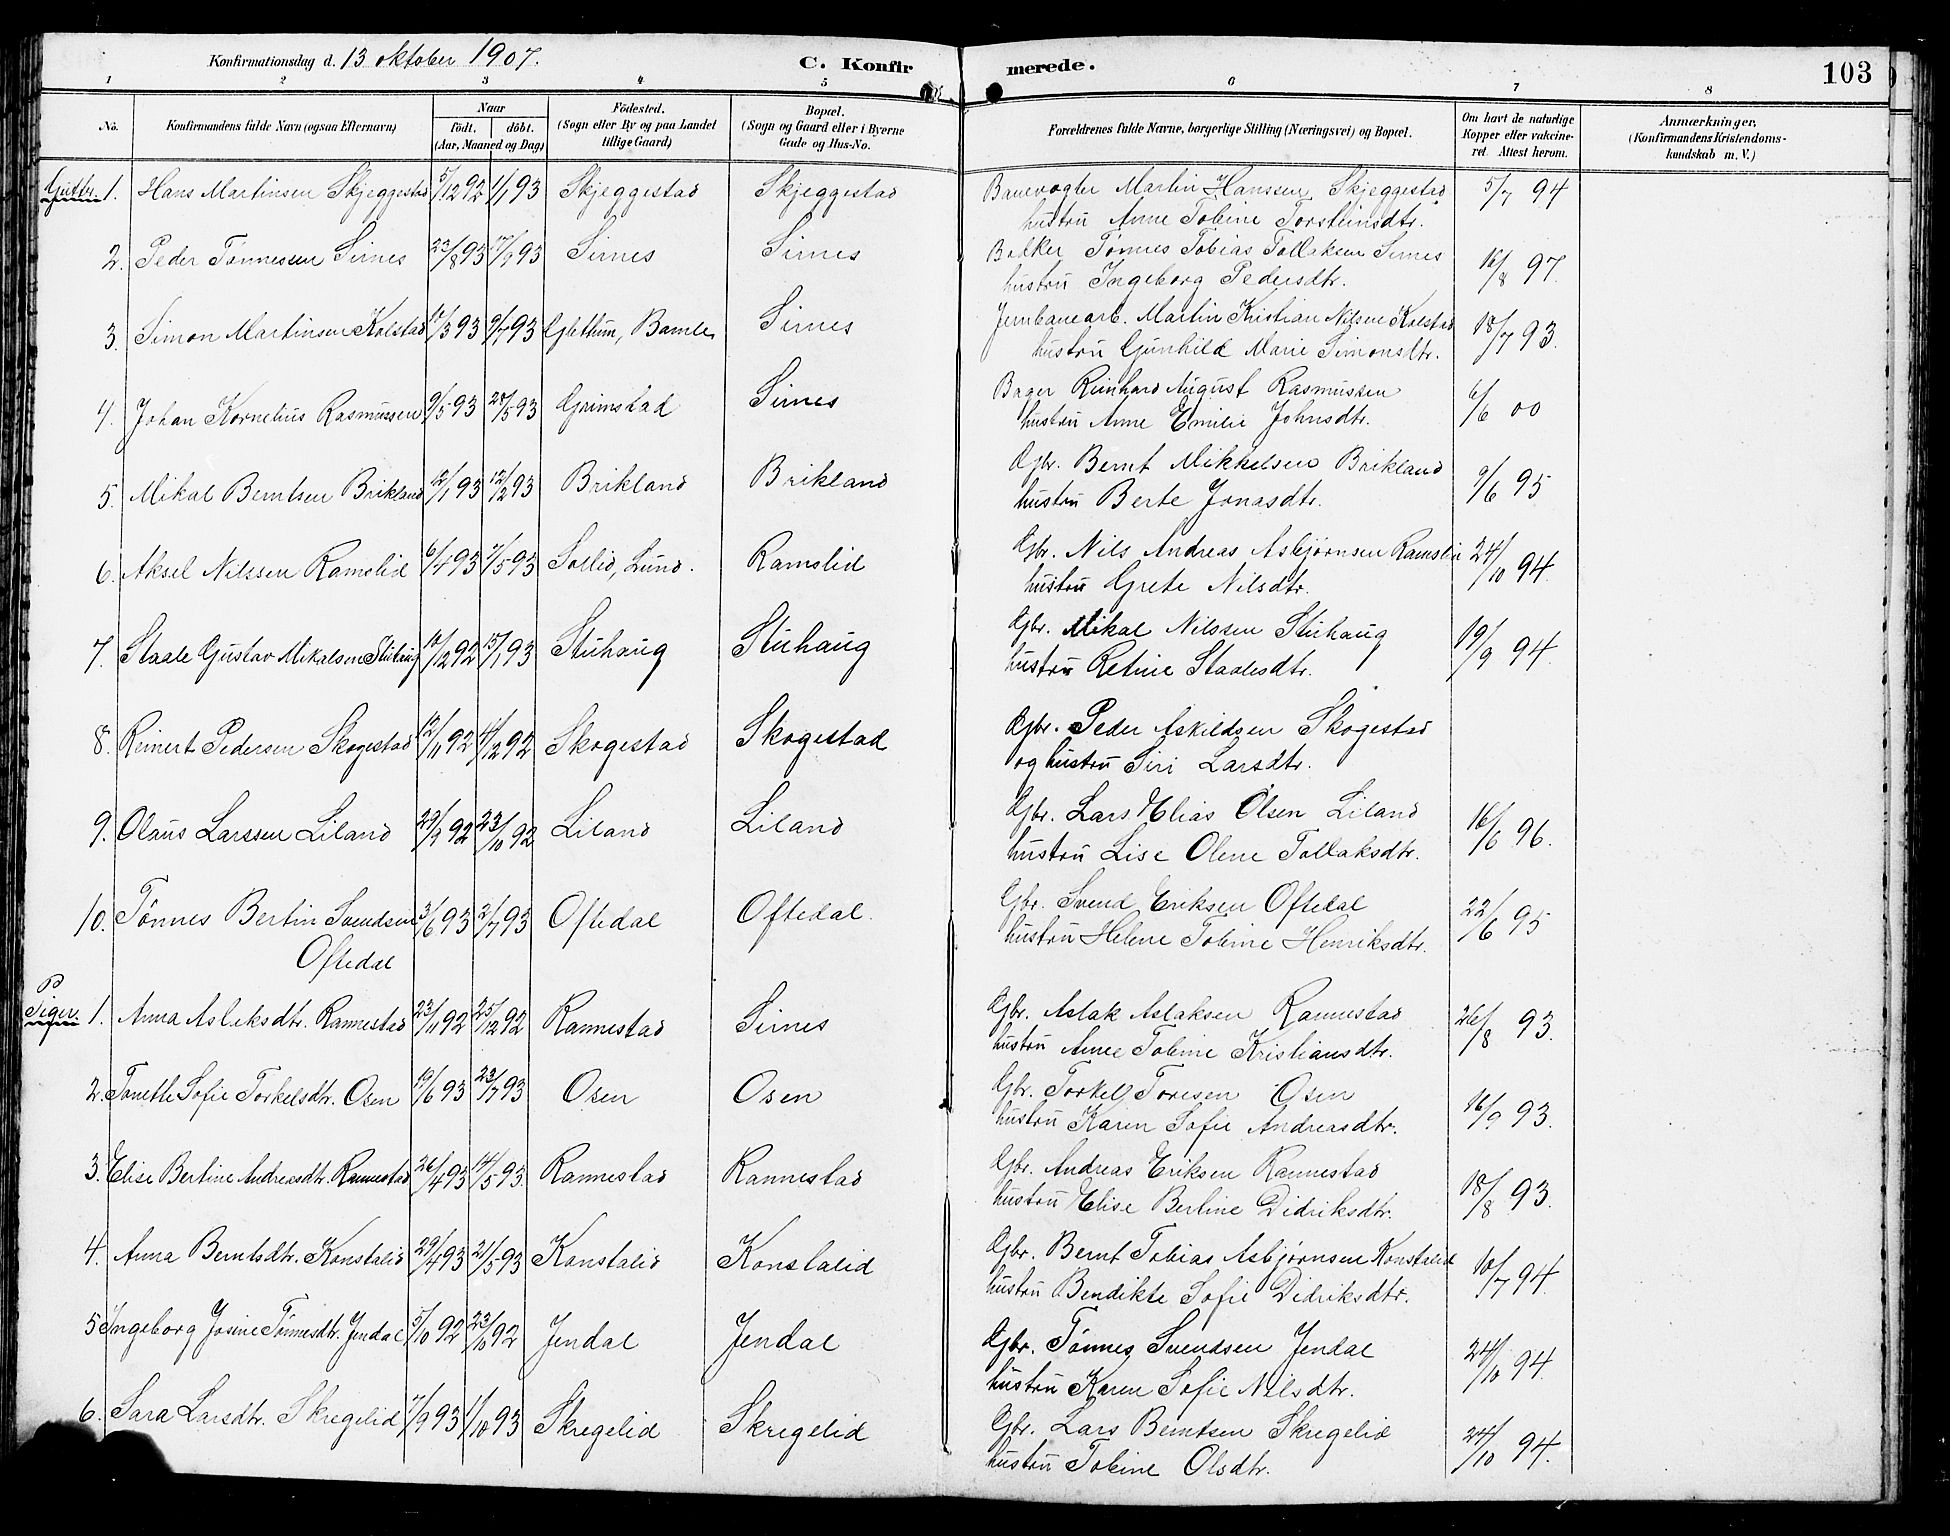 Konfirmationsdag d. 13 oktober 1907. C. Konfirmerede. 103
1 2 3 4 5 6 7 8
No. Konfirmandens fulde Navn (ogsaa Efternavn) Naar födt. döbt. (Aar, Maaned og Dag) Födested. (Sogn eller By og paa Landet tillige Gaard) Bopæl. (Sogn og Gaard eller i Byerne Gade og Hus-No. Forældrenes fulde Navne, borgerlige Stilling (Næringsvei) og Bopæl. Om havt de naturlige Kopper eller vakcineret. Attest herom. Anmærkninger. (Konfirmandens Kristendomskundskab m. V.)
Gutter. 1. Hans Martinsen Skjeggestad 5/12 92 1/1 93 Skjeggestad Skjeggestad Banevogter Martin Hanssen Skjeggestad 5/7 94
hustru Anne Tobine Torsteinsdtr.
2. Peder Tønnessen Sirnes 23/8 93 17/9 93 Sirnes Sirnes Tønnes Tobias Tollaksen Sirnes 16/8 97.
hustru Ingeborg Pedersdtr.
3. Simon Martinsen Kolstad 17/3 93 9/7 93 Bamle Sirnes Jernbanearb. Martin Kristian Nilsen Kolstad 18/7 93.
hustru Gunhild Marie Simonsdtr.
4. Johan Kornelius Rasmussen 9/5 93 28/5 93 Grimstad Sirnes Bager Reinhard August Rasmussen 6/6 00
hustru Anne Emilie Johnsdtr.
5. Mikal Berntsen Brikland 12/1 93 12/2 93 Brikland Brikland Gbr. Bernt Mikkelsen Brikland 9/6 95
hustru Berte Jonasdtr.
6. Aksel Nilssen Ramslid 6/4 93 7/5 93 Sollid, Lund. Ramslid Gbr. Nils Andreas Asbjørnsen Ramslid 24/10 94.
hustru Grete Nilsdtr.
7. Staale Gustav Mikalsen Stuhaug 17/12 92 15/1 93 Stuhaug Stuhaug Gbr. Mikal Nilssen Stuhaug 19/9 94.
hustru Retine Staalesdtr.
8. Reinert Pedersen Skogestad 12/11 92 4/12 92 Skogestad Skogestad Gbr. Peder Askildsen Skogestad
og hustru Siri Larsdtr.
9. Olaus Larssen Liland 29/9 92 23/10 92 Liland Liland Gbr. Lars Elias Olsen Liland 16/6 96.
hustru Lise Olene Tollaksdtr.
10. Tønnes Bertin Svendsen 3/6 93 2/7 93 Oftedal Oftedal. Gbr. Svend Eriksen Oftedal 22/6 95
Oftedal hustru Helene Tobine Henriksdtr.
Piger. 1. Anna Aslaksdtr. Rannestad 23/11 92 25/12 92 Rannestad Sirnes Gbr. Aslak Aslaksen Rannestad 26/8 93.
hustru Anne Tobine Kristiansdtr.
2. Tonette Sofie Torkelsdtr. Osen 19/6 93 23/7 93 Osen Osen Gbr. Torkel Toresen Osen 16/9 93.
hustru Karen Sofie Andreasdtr.
3. Elise Bertine Andreasdtr. Rannestad 26/4 93 14/5 93. Rannestad Rannestad Gbr. Andreas Eriksen Rannestad 18/8 93.
hustru Elise Bertine Didriksdtr.
4. Anna Berntsdtr. Konstalid 29/4 93 21/5 93 Konstalid Konstalid Gbr. Bernt Tobias Asbjørnsen Konstalid 10/7 94.
hustru Bendikte Sofie Didriksdtr.
5 Ingeborg Josine Tønnesdtr. Jendal 5/10 92 23/10 92 Jendal Jendal Gbr. Tønnes Svendsen Jendal 24/10 94.
hustru Karen Sofie Nilsdtr.
6. Sara Larsdtr. Skregelid 7/9 93 1/10 93 Skregelid Skregelid Gbr. Lars Berntsen Skregelid 24/10 94.
hustru Tobine Olsdtr.